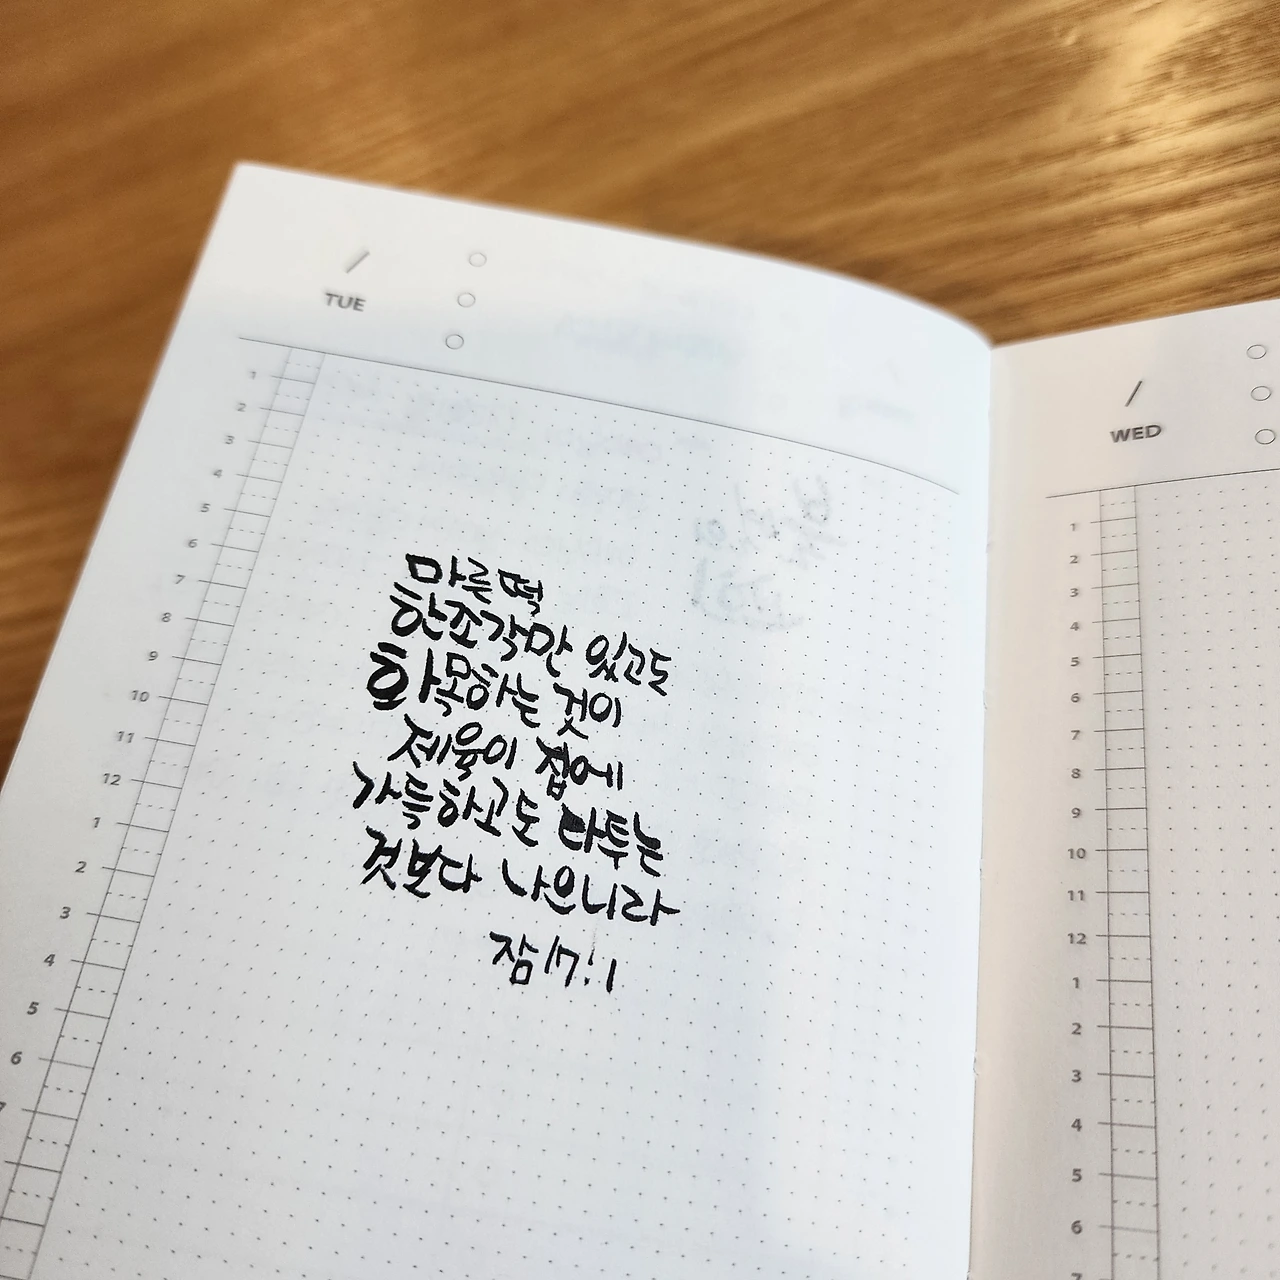 TUE
1
2
3
4
5
6
7
8
9
10
11
12
1
2
3
4
5
6
7
마른떡
한조각만 있고도
화목하는 것이
제육이 집에
가득하고도 다투는
것보다 나으니라
잠 17:1
WED
1
2
3
4
5
6
7
8
9
10
11
12
1
2
3
4
5
6
7